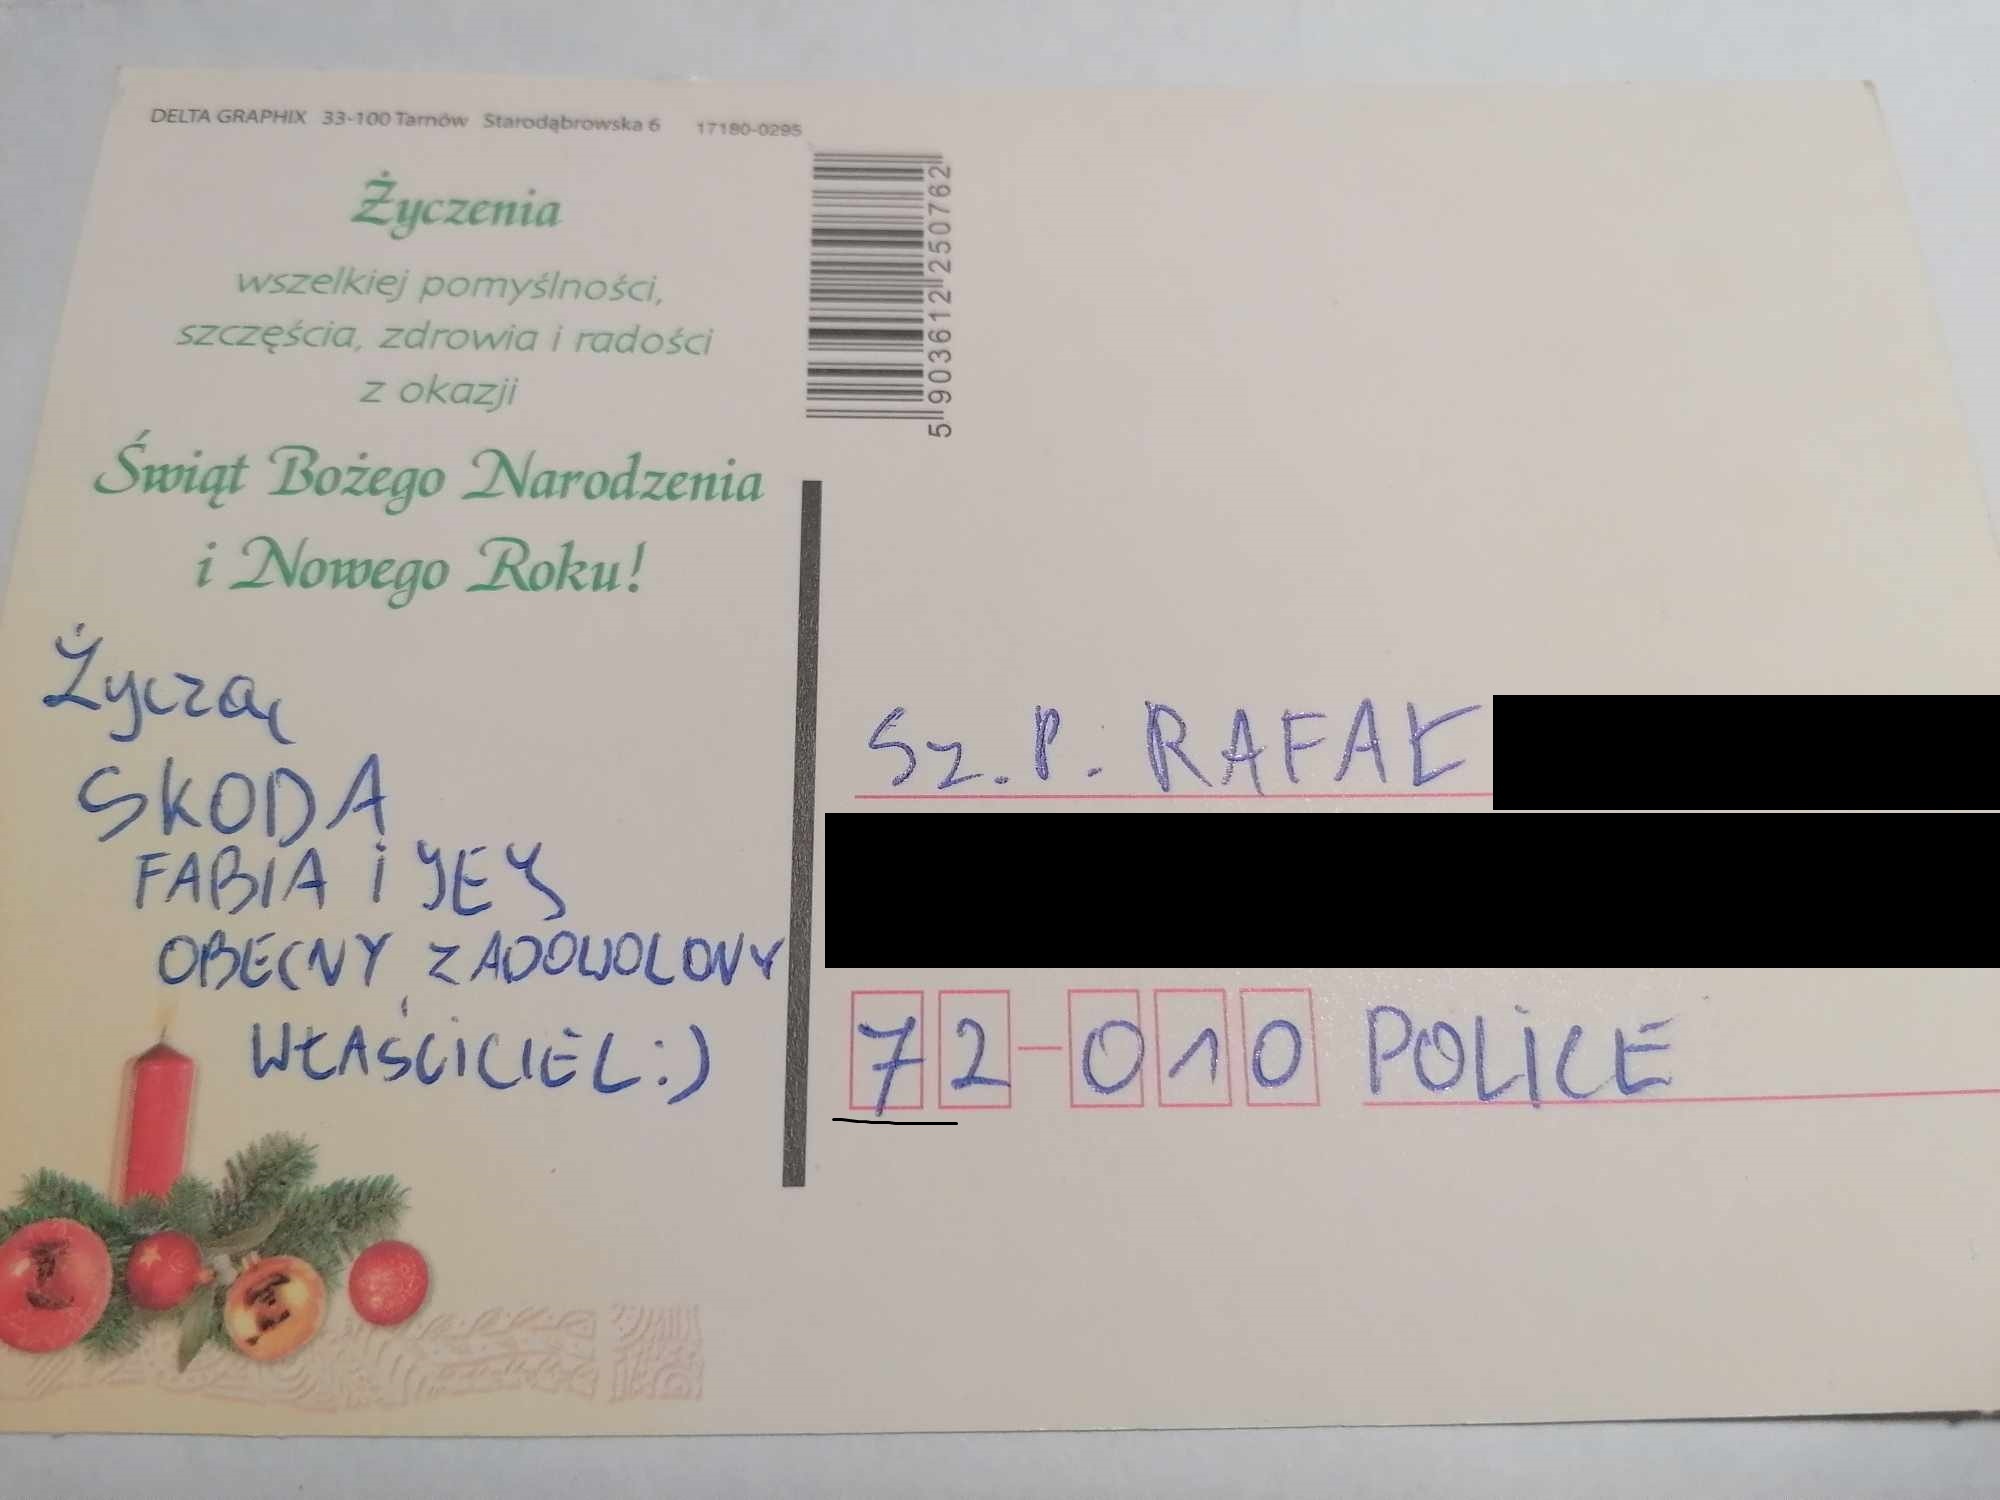 DELTA GRAPHIX 33-100 Tarnów Starodąbrowska 6 17180-0295
Życzenia
wszelkiej pomyślności,
szczęścia, zdrowia i radości
z okazji
Świąt Bożego Narodzenia
i Nowego Roku!
Życzą
SKODA
FABIA i JEJ
OBECNY ZADOWOLONY
WŁAŚCICIEL :)
5 903612 250762
Sz. P. RAFAŁ
72-010 POLICE